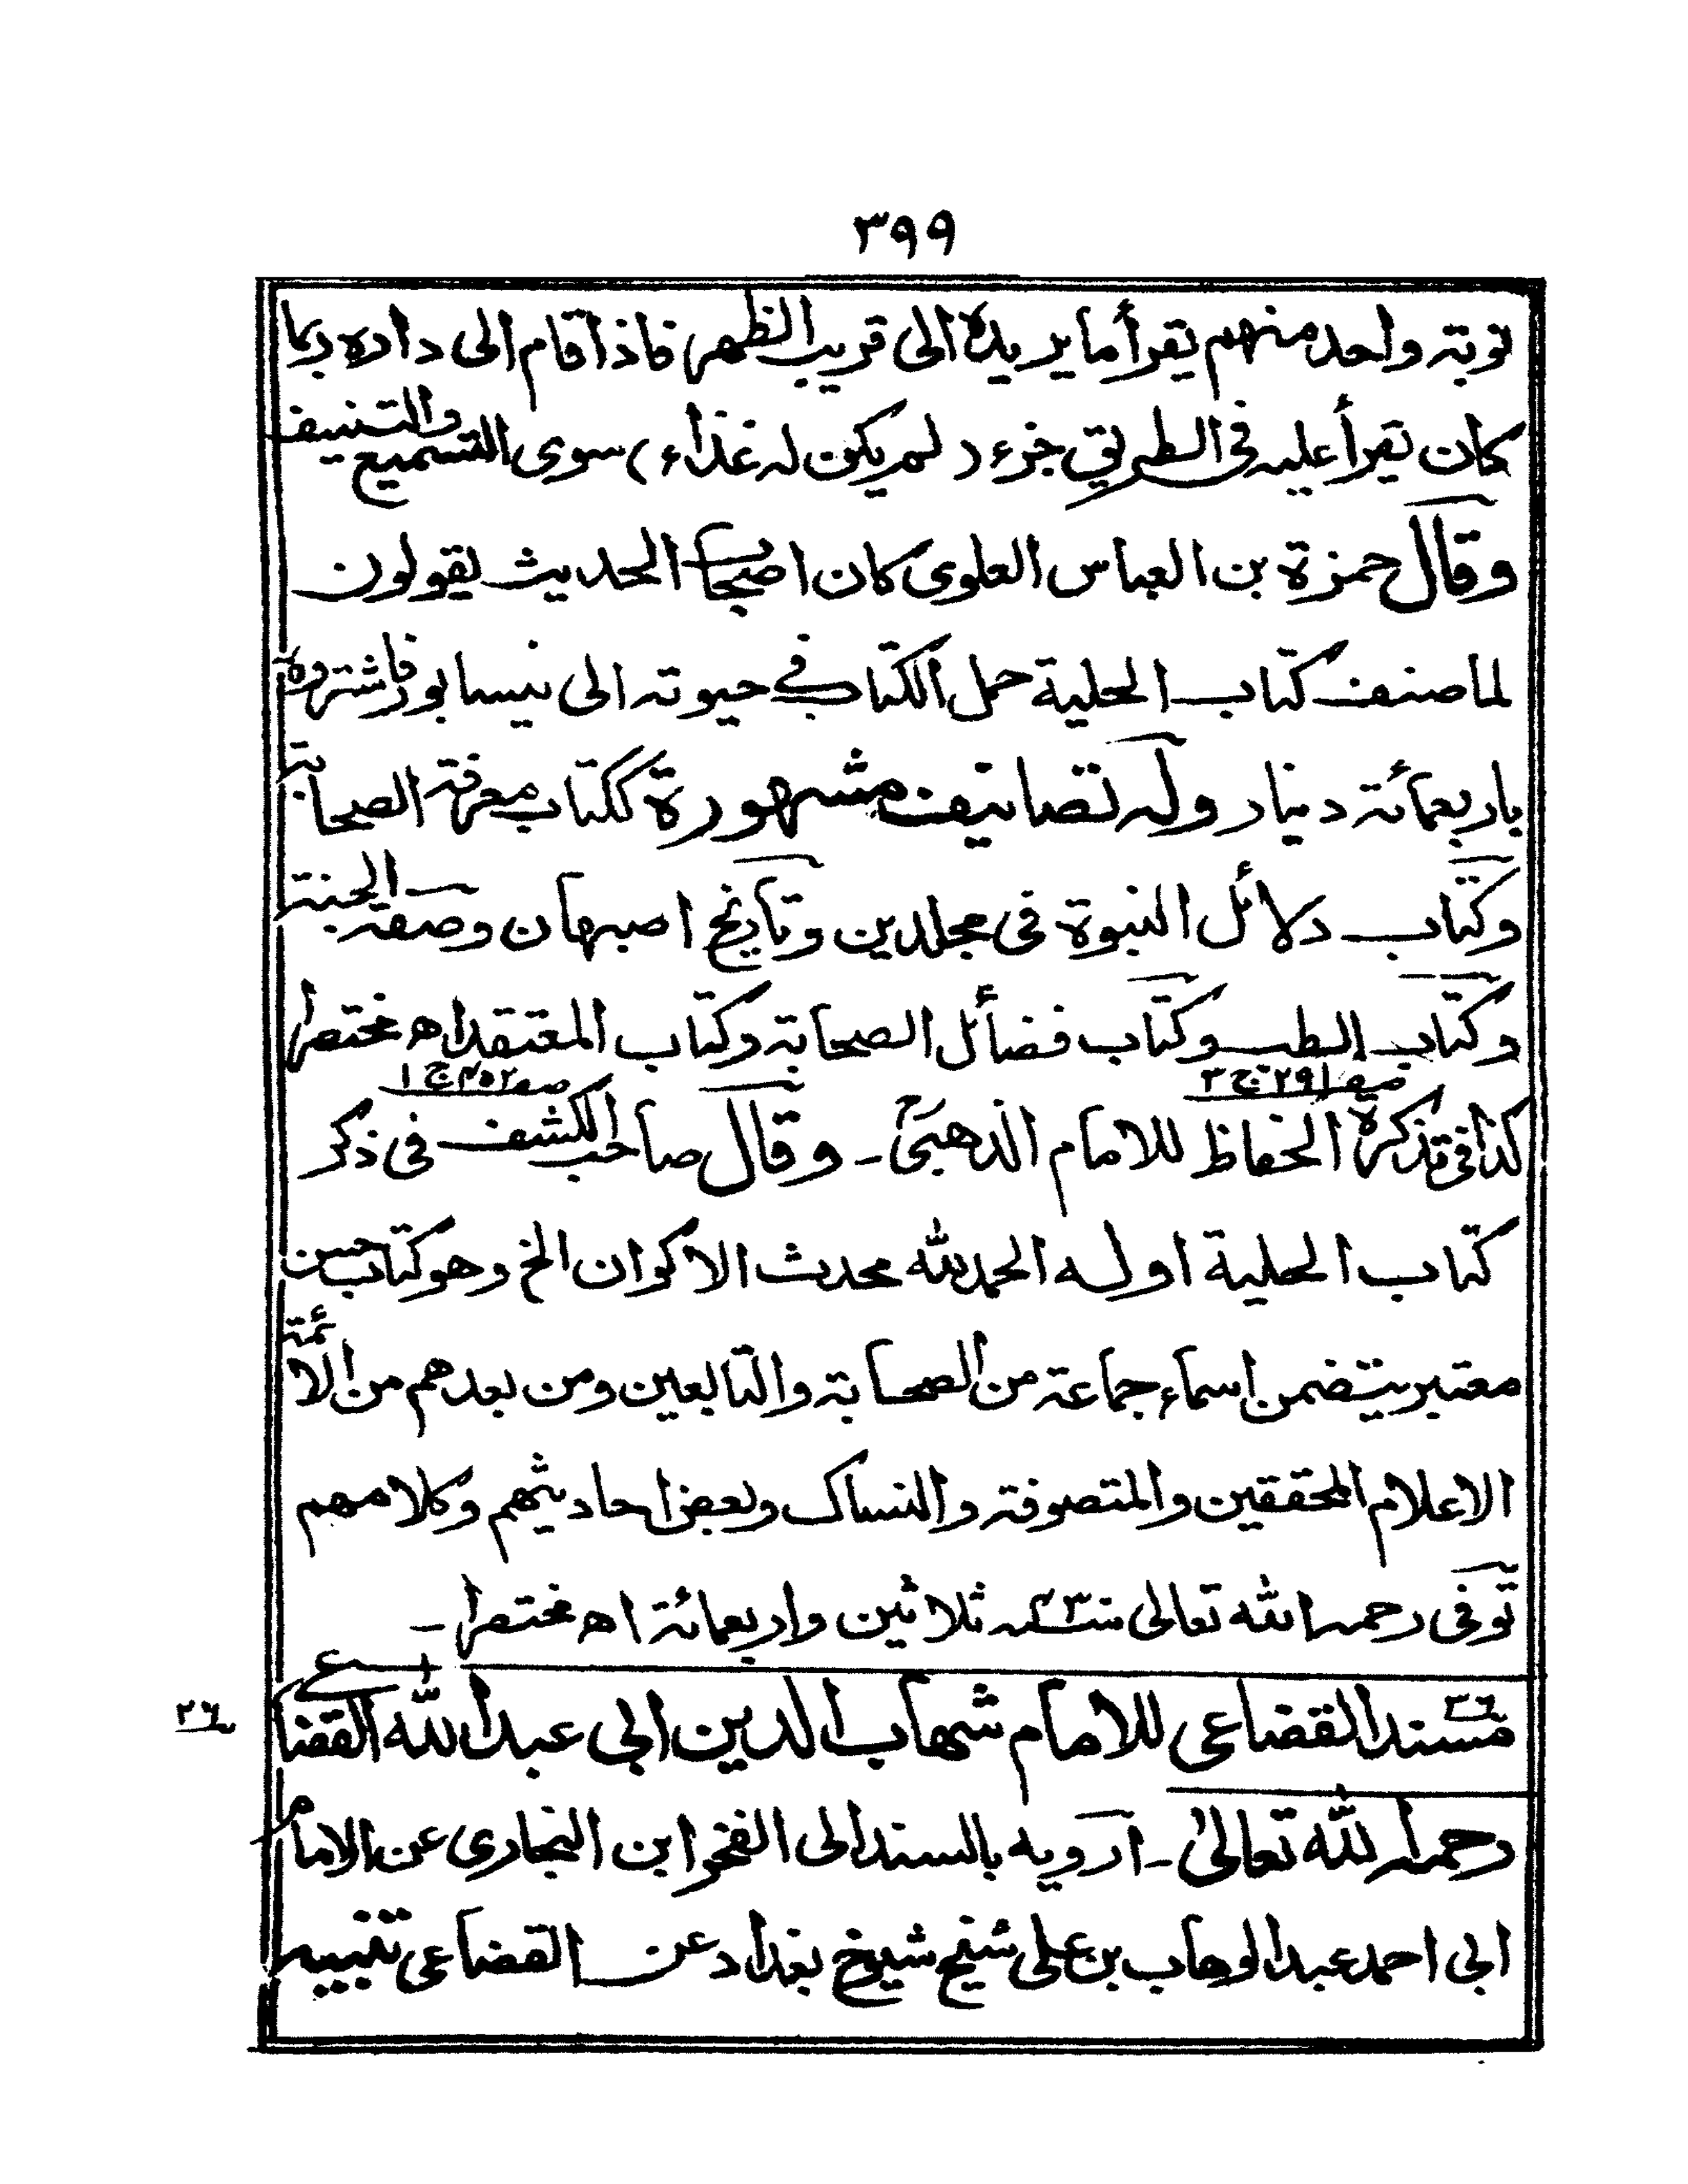 ٣٩٩
نوبة واحد منهم يقرأ ما يريده الى قريب الظهر فاذا قام الى داره ربما
كان يقرأ عليه فى الطريق جزء (لم يكن له غذاء) سوى التسميع والتصنيف
وقال حمزة بن العباس العلوى كان اصحاب الحديث يقولون
لما صنف كتاب الحلية حمل الكتاب فى حيوته الى نيسابور فاشتروه
باربعمائة دينار وله تصانيف مشهورة ككتاب معرفة الصحابة
وكتاب دلائل النبوة فى مجلدين وتاريخ اصبهان وصفة الجنة
وكتاب الطب وكتاب فضائل الصحابة وكتاب المعتقد اھ مختصرا
صفہ ٢٩١ ج ٣
كذا فى تذكرة الحفاظ للامام الذهبى - وقال صاحب الكشف فى ذكر
صفہ ٤٥٢ ج ١
كتاب الحلية اوله الحمد لله محدث الاكوان الخ وهو كتاب حسن
معتبر يتضمن اسماء جماعة من الصحابة والتابعين ومن بعدهم من الائمة
الاعلام المحققين والمتصوفة والنساك وبعض احاديثهم وكلامهم
توفى رحمه الله تعالى سنة ٤٣٠ ثلاثين واربعمائة اھ مختصرا -
مسند القضاعى للامام شهاب الدين ابى عبد الله القضاعى
٣٦
رحمه الله تعالىٰ - ارويه بالسند الى الفخر ابن البخارى عن الامام
ابى احمد عبد الوهاب بن على شيخ شيوخ بغداد عن القضاعى تنبيه